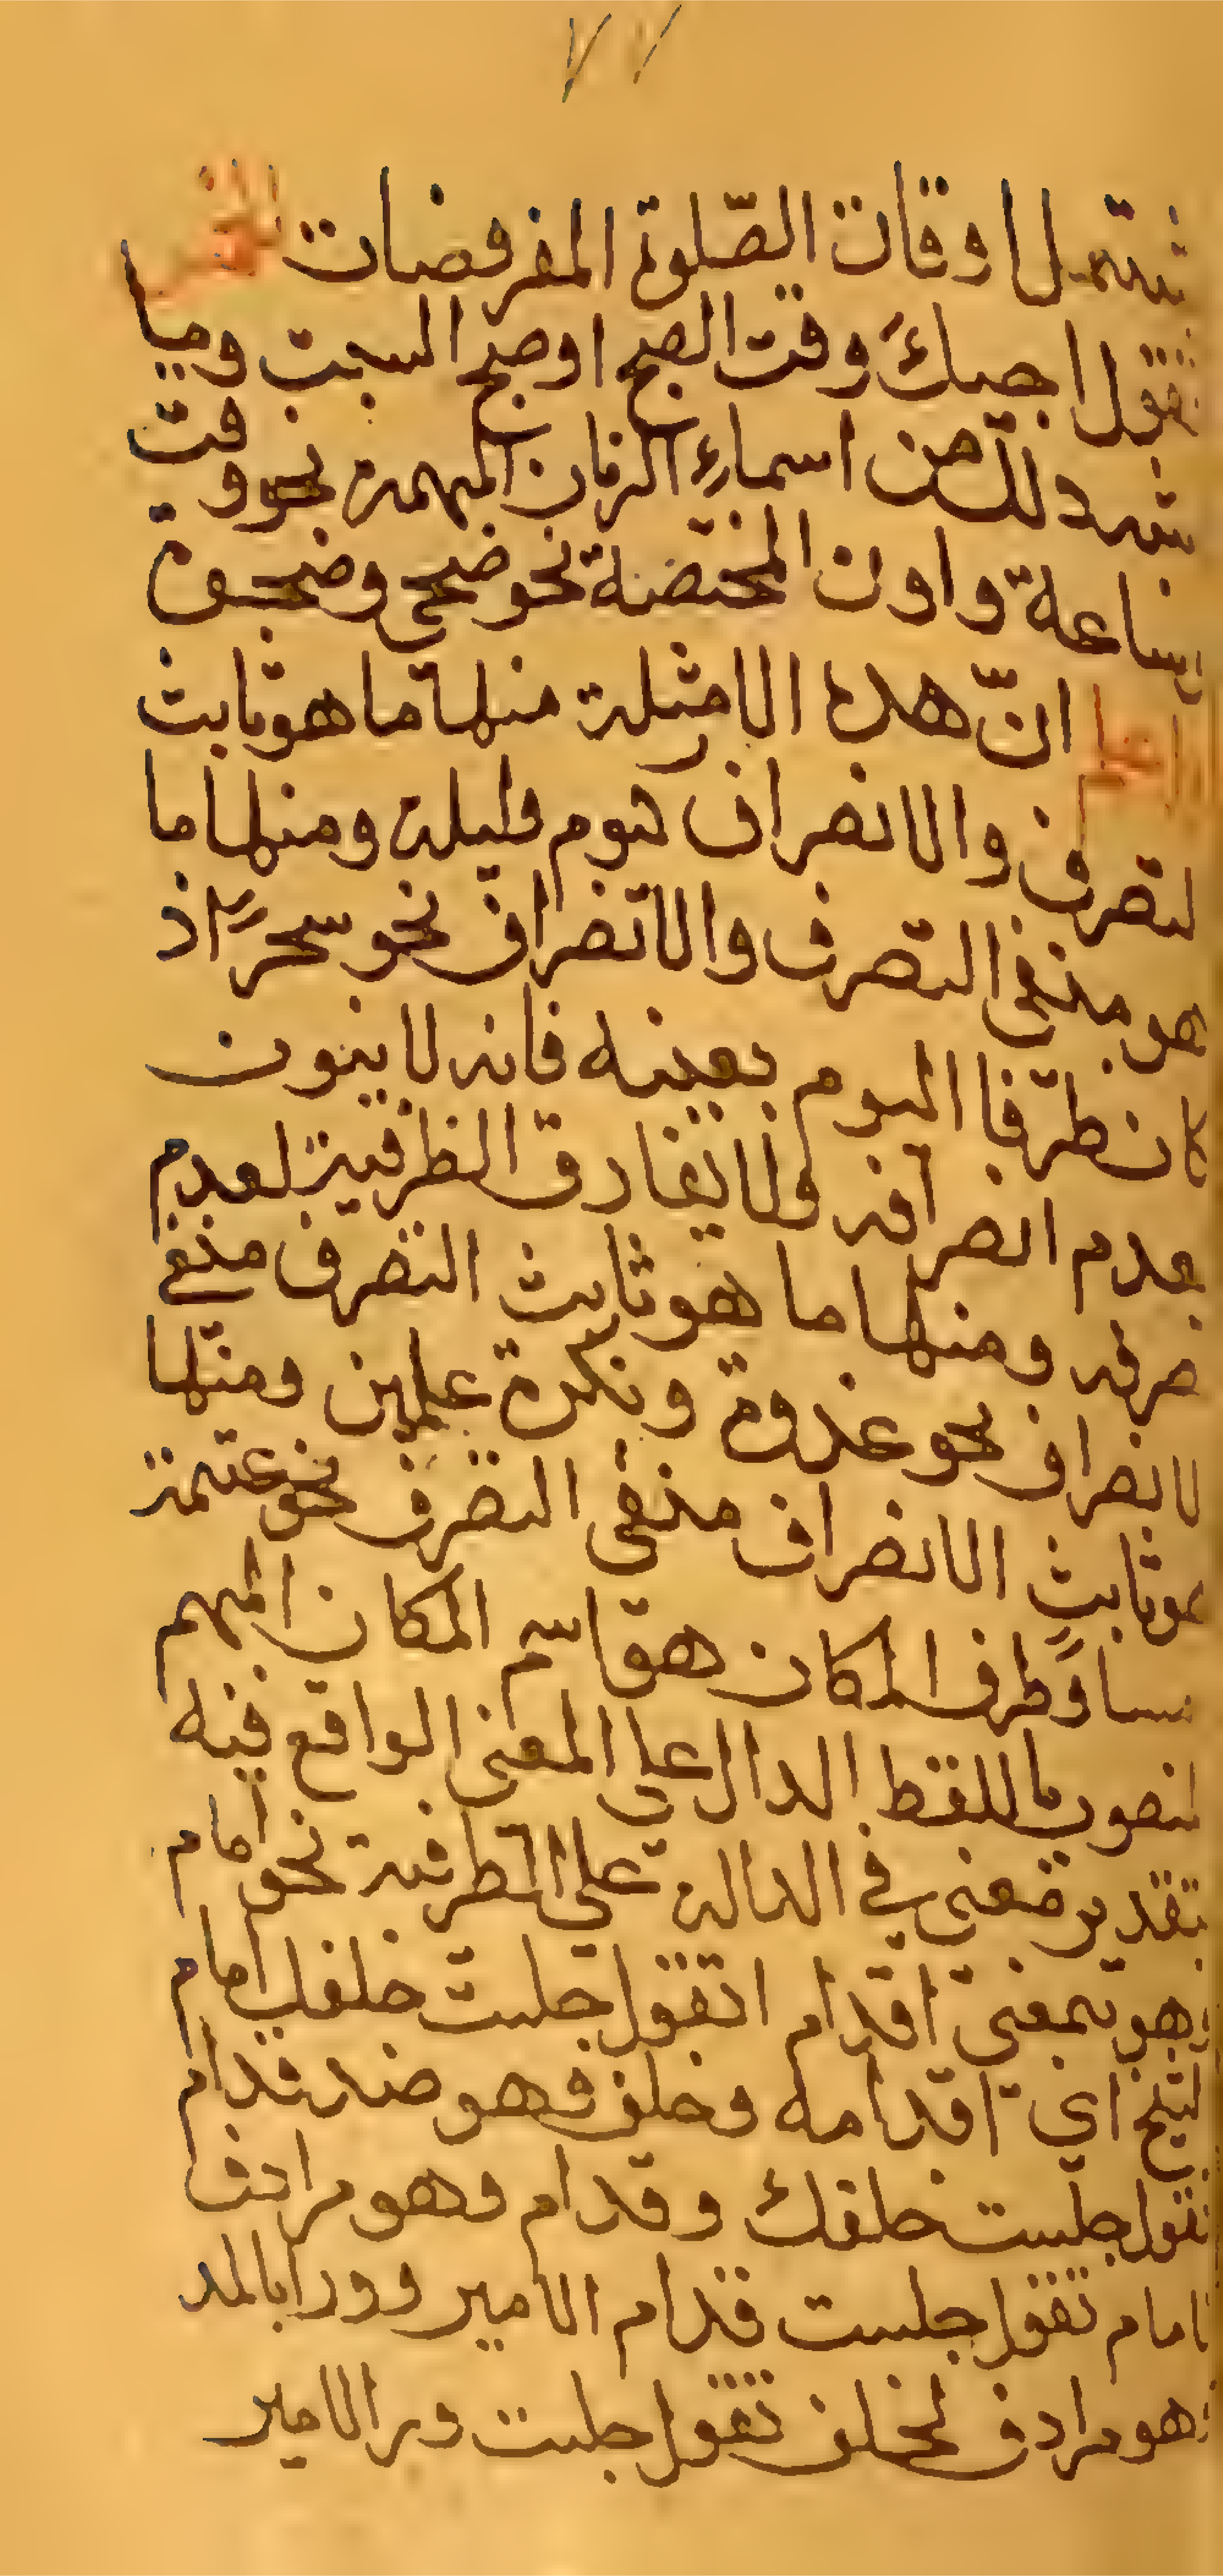 ٧٧
يشمل اوقات الصّلوة المفروضات الخمس
تقول اجيئك وقت الصبح او صبح السبت وما
اشبه ذلك من اسماء الزمان المبهمة نحو وقت
وساعة واوان المختصة نحو ضحى وضحوة
اعلم انّ هذه الامثلة منها ما هو ثابت
التصرف والانصراف كيوم وليلة ومنها ما
هو منفي التصرف والانصراف نحو سحرًا اذ
كان ظرفا اليوم بعينه فانه لا ينون
لعدم انصرافه ولا يفارق الظرفية لعدم
صرفه ومنها ما هو ثابت التصرف منفي
الانصراف نحو غدوة وبكرة علمين ومنها
هو ثابت الانصراف منفي التصرف نحو عتمة
مساءً وظرف المكان هو اسم المكان المبهم
المنصوب باللفظ الدال على المعنى الواقع فيه
بتقدير معنى في الدالة على الظرفية نحو امام
وهو بمعنى اقدام اتقول جلست خلفك امام
الشيخ اي اقدامه وخلف وهو ضد قدام
تقول جلست خلفك وقدام وهو مرادف
لامام تقول جلست قدام الامير وورا بالمد
وهو مرادف لخلف تقول جلست ورا الامير